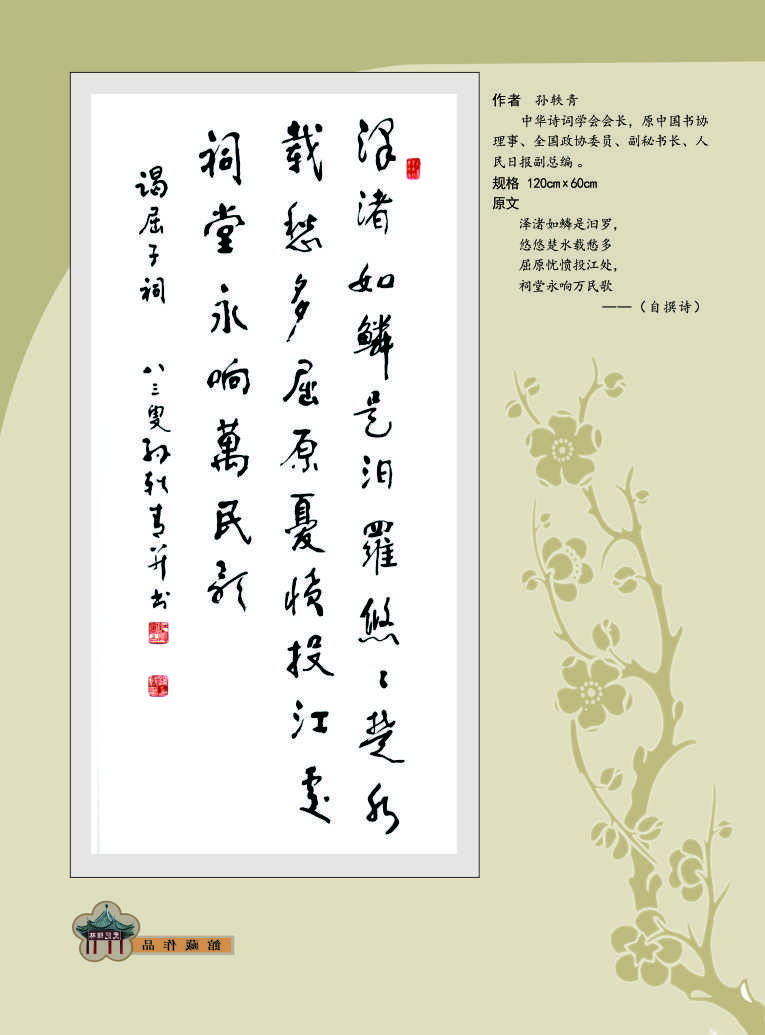 澤渚如鱗是汨羅悠々楚水
載愁多屈原憂憤投江處
祠堂永响萬民歌
謁屈子祠 八三叟孙轶青并书
作者 孙轶青
中华诗词学会会长，原中国书协
理事、全国政协委员、副秘书长、人
民日报副总编。
规格 120cm×60cm
原文
泽渚如鳞是汨罗，
悠悠楚水载愁多
屈原忧愤投江处，
祠堂永响万民歌
——（自撰诗）
館藏作品